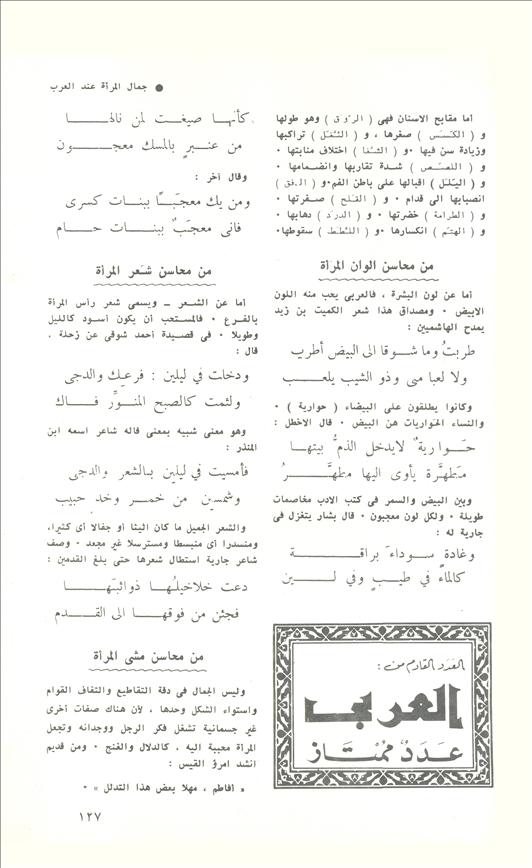 ● جمال المرأة عند العرب
أما مقابح الاسنان فهى ( الرَّوَق ) وهو طولها
و ( الكَسَس ) صغرها ، و ( الثَّعَل ) تراكبها
وزيادة سن فيها • و ( الشَّغَا ) اختلاف منابتها •
و ( اللَّصَص ) شدة تقاربها وانضمامها •
و ( اليَلَل ) اقبالها على باطن الفم • و ( الدفق )
انصبابها الى قدام • و ( القَلَح ) صفرتها •
و ( الطرامة ) خضرتها • و ( الدرَد ) ذهابها •
و ( الهتَم ) انكسارها • و ( اللَّطَط ) سقوطها •
من محاسن الوان المرأة
أما عن لون البشرة ، فالعربي يحب منه اللون
الابيض • ومصداق هذا شعر الكميت بن زيد
يمدح الهاشميين :
طربتُ وما شوقا الى البيض أطرب
ولا لعبا منى وذو الشيب يلعب
وكانوا يطلقون على البيضاء ( حوارية ) •
والنساء الحواريات هن البيض • قال الاخطل :
حوارية لايدخل الذمُّ بيتها
مطهَّرة يأوى اليها مطهَّرُ
وبين البيض والسمر فى كتب الادب مخاصمات
طويلة • ولكل لون معجبون • قال بشار يتغزل فى
جارية له :
وغادة سوداءَ براقة
كالماء في طيبٍ وفي لين
العدد القادم من :
العربي
عدد ممتاز
كأنها صيغت لمن نالها
من عنبرٍ بالمسك معجون
وقال آخر :
ومن يك معجبًا ببنات كسرى
فانى معجَبٌ ببنات حام
من محاسن شَعر المرأة
أما عن الشعر ــ ويسمى شعر رأس المرأة
بالفرع • فالمستحب أن يكون أسود كالليل
وطويلا • فى قصيدة أحمد شوقى عن زحلة ،
قال :
ودخلت في ليلين : فرعِك والدجى
ولثمت كالصبح المنوِّر فاك
وهو معنى شبيه بمعنى قاله شاعر اسمه ابن
المنذر :
فأمسيت في ليلين بالشعر والدجى
وشمسين من خمر وخد حبيب
والشعر الجميل ما كان أثيثا أو جفالا أى كثيرا،
ومنسدرا أى منبسطا ومسترسلا غير مجعد • وصف
شاعر جارية استطال شعرها حتى بلغ القدمين :
دعت خلاخيلُها ذوائبَها
فجئن من فوقها الى القدم
من محاسن مشى المرأة
وليس الجمال فى دقة التقاطيع والتفاف القوام
واستواء الشكل وحدها ، لأن هناك صفات أخرى
غير جسمانية تشغل فكر الرجل ووجدانه وتجعل
المرأة محببة اليه ، كالدلال والغنج • ومن قديم
أنشد امرؤ القيس :
« أفاطم ، مهلا بعض هذا التدلل » •
١٢٧